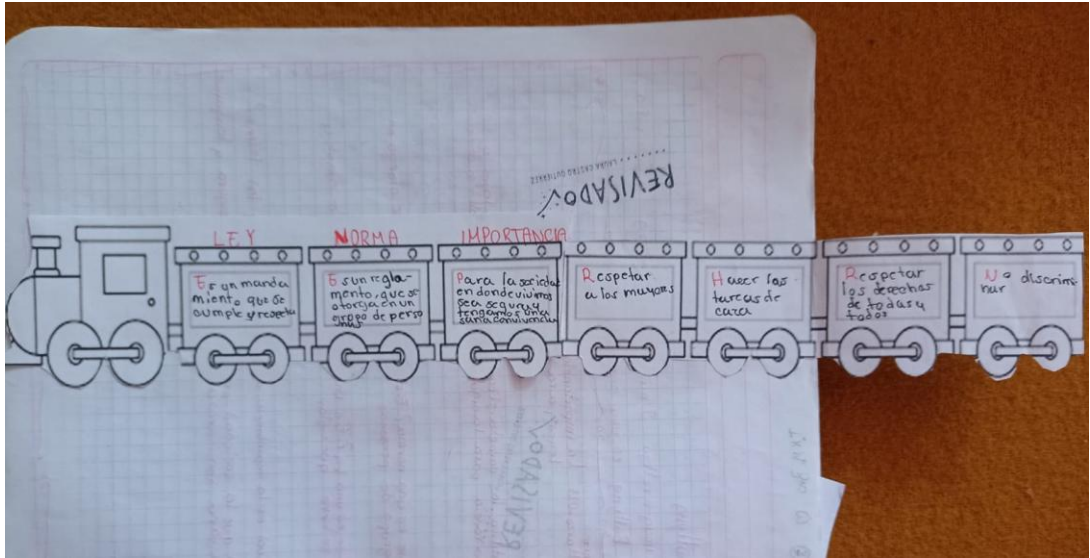 REVISADO
LAURA CASTRO GUTIÉRREZ
LEY
Es un manda
miento que se
cumple y respeta
NORMA
Es un regla-
mento, que se
otorga en un
grupo de perso
nas
IMPORTANCIA
Para la sociedad
en donde vivimos
sea segura y
tengamos una
sana convivencia
Respetar
a los mayores
Hacer las
tareas de
casa
Respetar
los derechos
de todas y
todos
No discrimi-
nar
REVISADO